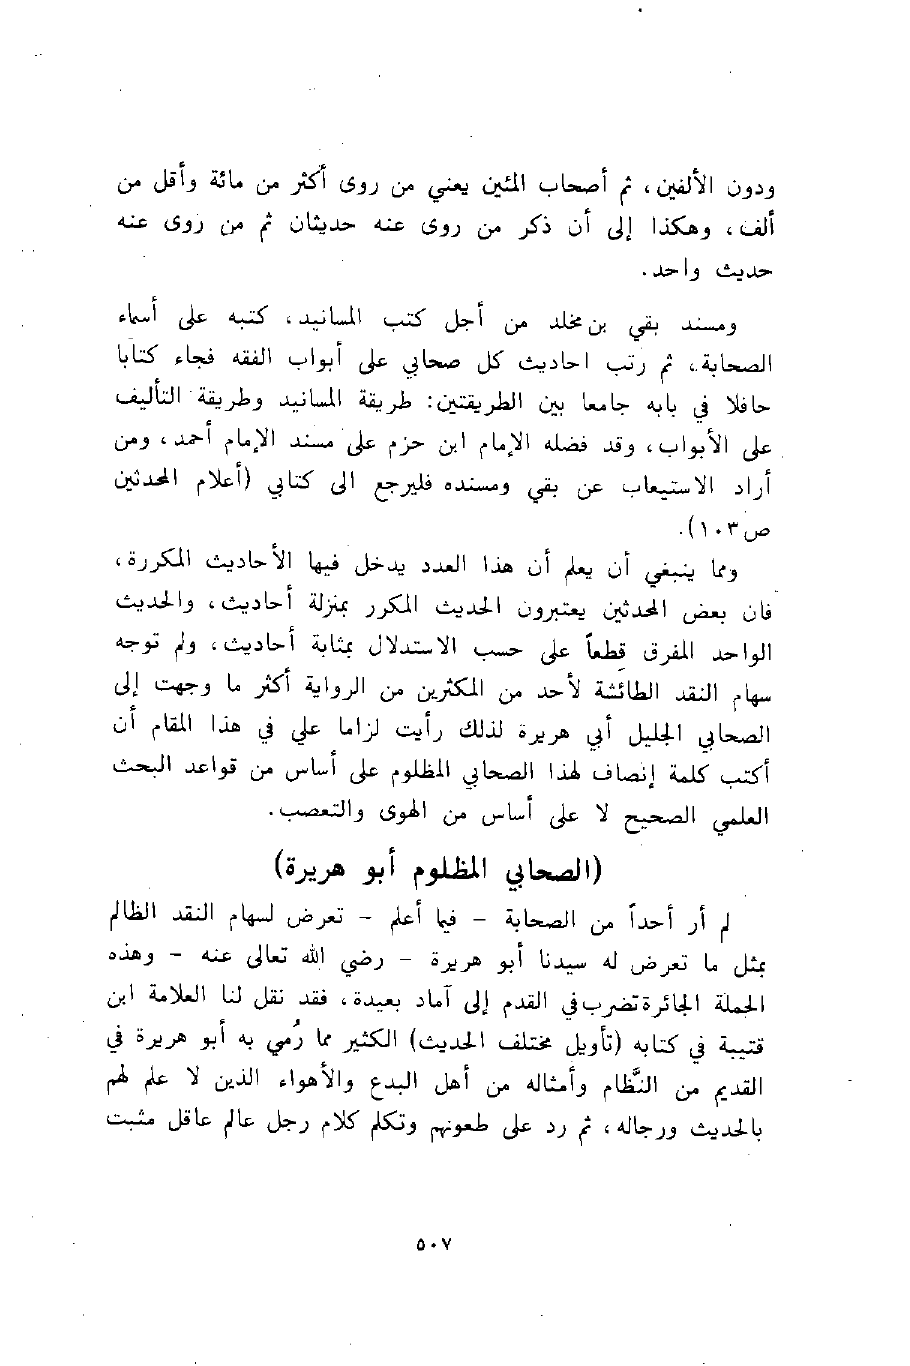 ودون الألفين، ثم أصحاب المئين يعني من روى أكثر من مائة وأقل من
ألف، وهكذا إلى أن ذكر من روى عنه حديثان ثم من روى عنه
حديث واحد.
ومسند بقي بن مخلد من أجل كتب المسانيد، كتبه على أسماء
الصحابة، ثم رتب احاديث كل صحابي على أبواب الفقه فجاء كتابا
حافلا في بابه جامعا بين الطريقتين: طريقة المسانيد وطريقة التأليف
على الأبواب، وقد فضله الإمام ابن حزم على مسند الإمام أحمد، ومن
أراد الاستيعاب عن بقي ومسنده فليرجع الى كتابي (أعلام المحدثين
ص١٠٣).
ومما ينبغي أن يعلم أن هذا العدد يدخل فيها الأحاديث المكررة،
فان بعض المحدثين يعتبرون الحديث المكرر بمنزلة أحاديث، والحديث
الواحد المفرق قطعاً على حسب الاستدلال بمثابة أحاديث، ولم توجه
سهام النقد الطائشة لأحد من المكثرين من الرواية أكثر ما وجهت إلى
الصحابي الجليل أبي هريرة لذلك رأيت لزاما علي في هذا المقام أن
أكتب كلمة إنصاف لهذا الصحابي المظلوم على أساس من قواعد البحث
العلمي الصحيح لا على أساس من الهوى والتعصب.
(الصحابي المظلوم أبو هريرة)
لم أر أحداً من الصحابة - فيما أعلم - تعرض لسهام النقد الظالم
بمثل ما تعرض له سيدنا أبو هريرة - رضي الله تعالى عنه - وهذه
الحملة الجائرة تضرب في القدم إلى آماد بعيدة، فقد نقل لنا العلامة ابن
قتيبة في كتابه (تأويل مختلف الحديث) الكثير مما رُمي به أبو هريرة في
القديم من النَّظام وأمثاله من أهل البدع والأهواء الذين لا علم لهم
بالحديث ورجاله، ثم رد على طعونهم وتكلم كلام رجل عالم عاقل مثبت
٥٠٧